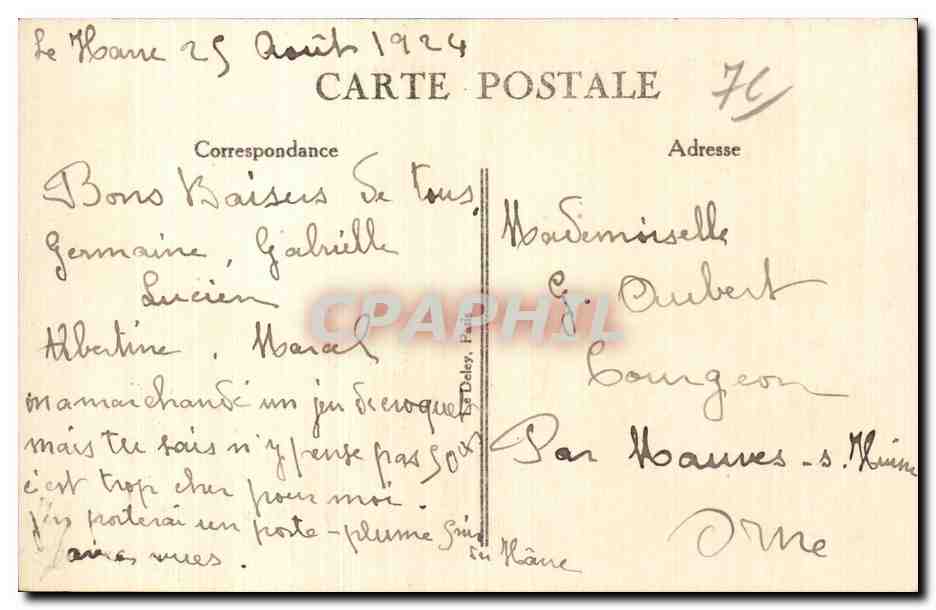 Le Havre 25 Août 1924
CARTE POSTALE
Correspondance
Bons Baisers de tous.
Germaine, Gabrielle
Lucien
Albertine, Marcel
on a marchandé un jeu de croquet
mais tu sais n'y pense pas 50f
c'est trop cher pour moi.
J'en porterai un porte-plume
vues.
du Hâvre
Le Deley, Paris
Adresse
Mademoiselle
G. Aubert
Courgeon
Par Mauves-s.-Huisne
Orne
CPAPHIL